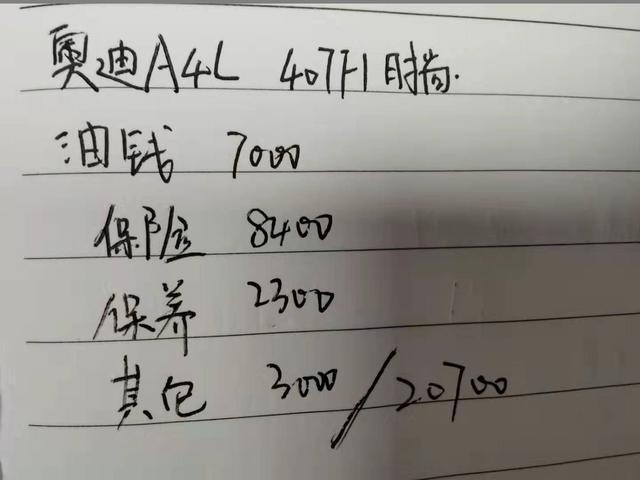 奥迪A4L 40TFI 时尚.
油钱 7000
保险 8400
保养 2300
其它 3000/20700